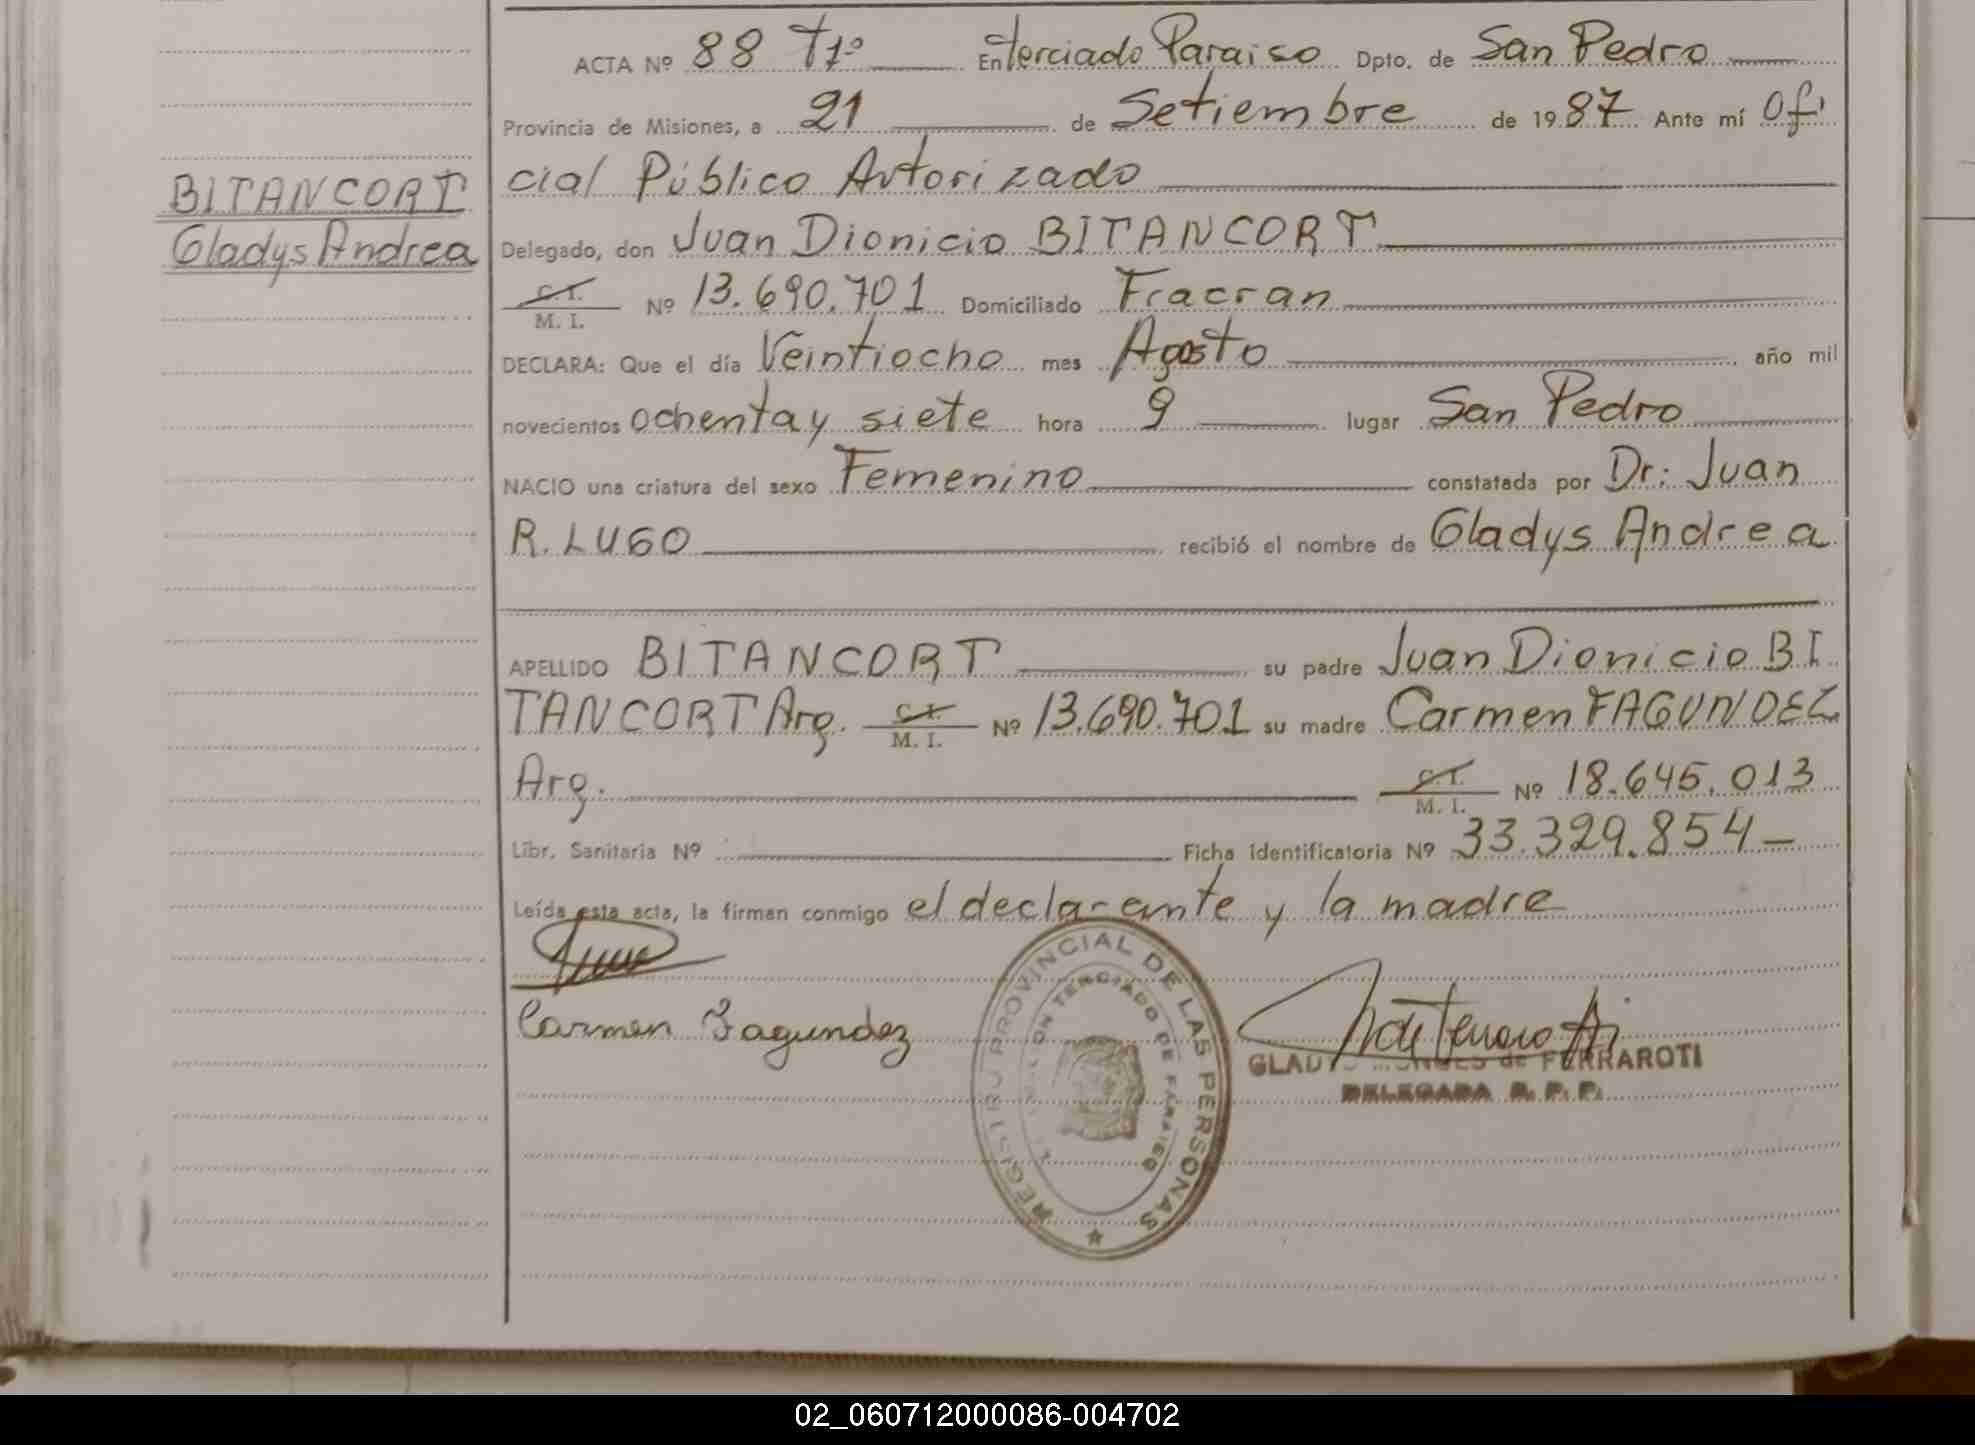 ACTA Nº 88 T1º En Terciado Paraiso Dpto. de San Pedro
Provincia de Misiones, a 21 de Setiembre de 1987 Ante mí Ofi
cial Público Autorizado
BITANCORT
Gladys Andrea
Delegado, don Juan Dionicio BITANCORT
C.I. M. I. Nº 13.690.701 Domiciliado Fracran
DECLARA: Que el día Veintiocho mes Agosto año mil
novecientos ochenta y siete hora 9 lugar San Pedro
NACIO una criatura del sexo Femenino constatada por Dr: Juan
R. LUGO recibió el nombre de Gladys Andrea
APELLIDO BITANCORT su padre Juan Dionicio BI
TANCORT Arg. C.I. M. I. Nº 13.690.701 su madre Carmen FAGUNDEZ
Arg. C.I. M. I. Nº 18.645.013
Libr. Sanitaria Nº Ficha identificatoria Nº 33.329.854-
Leída esta acta, la firman conmigo el declarante y la madre
Carmen Fagundez
REGISTRO PROVINCIAL DE LAS PERSONAS
TERCIADO DE PARAISO
GLADYS de FERRAROTI
DELEGADA R. P. P.
02_060712000086-004702